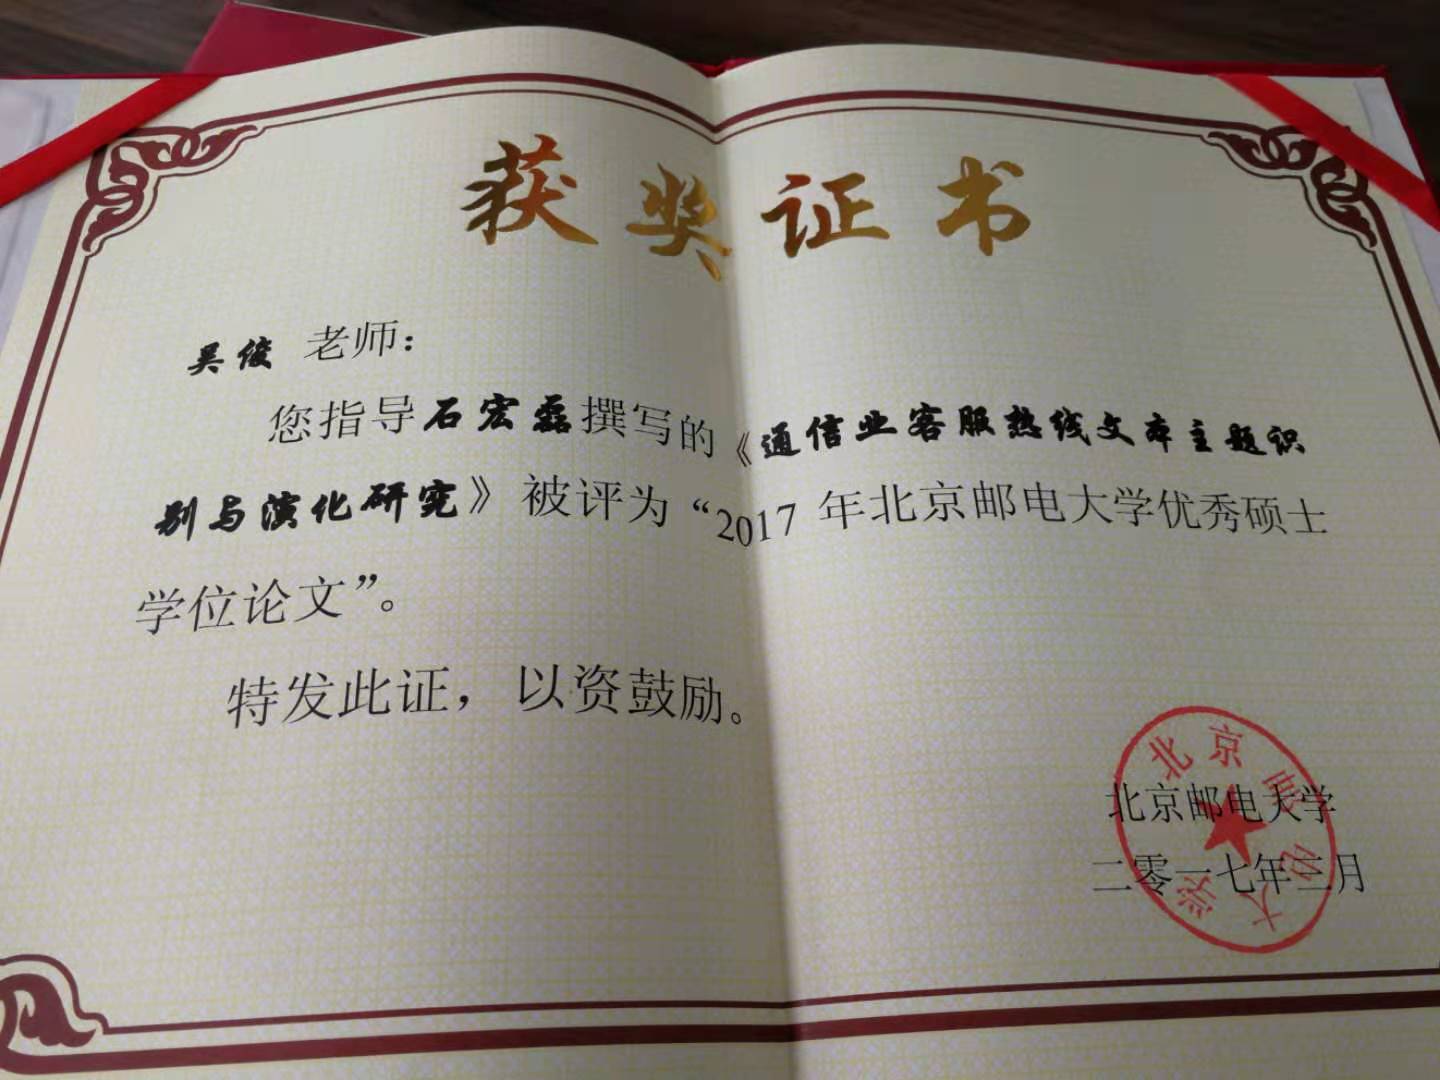 获奖证书
吴俊 老师：
您指导石宏磊撰写的《通信业客服热线文本主题识
别与演化研究》被评为“2017 年北京邮电大学优秀硕士
学位论文”。
特发此证，以资鼓励。
北京邮电大学
二零一七年三月
北京邮电大学